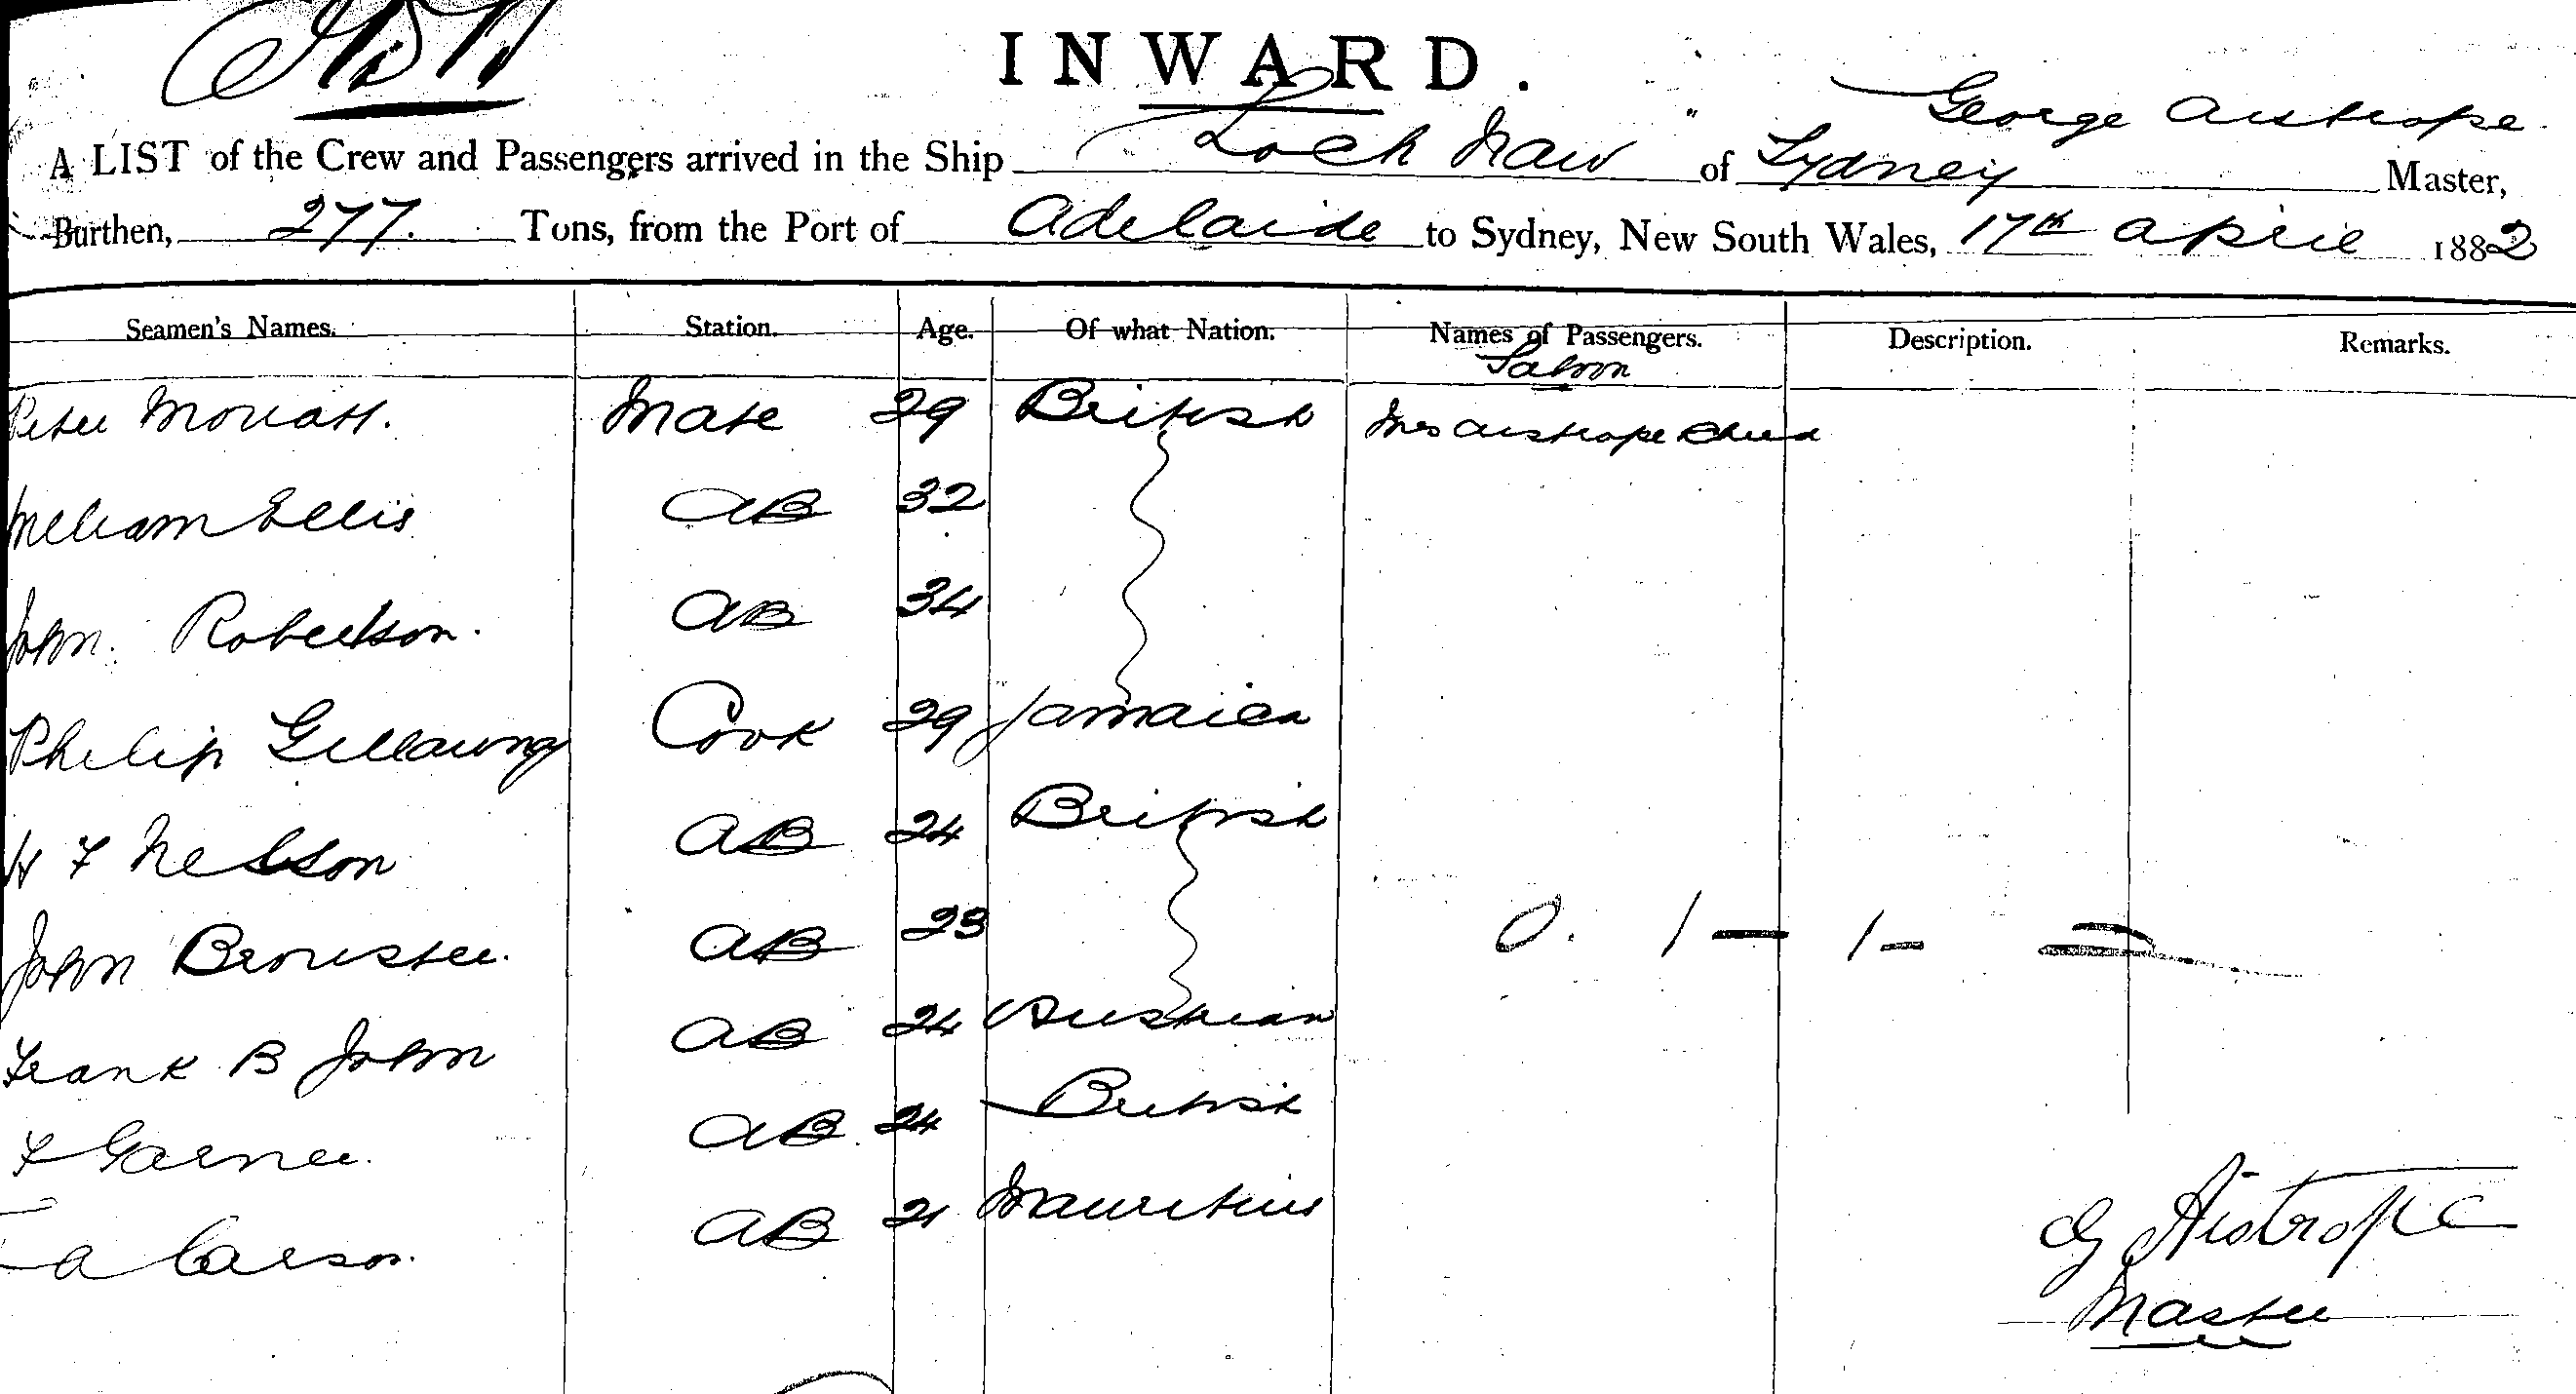 INWARD.
George Aistrope.
A LIST of the Crew and Passengers arrived in the Ship Loch Naw of Sydney Master,
Burthen, 277. Tons, from the Port of Adelaide to Sydney, New South Wales, 17th April 1882
Seamen's Names. Station. Age. Of what Nation. Names of Passengers. Description. Remarks.
Saloon
Peter Mouatt. Mate 29 British Mrs Aistrope Child
William Ellis AB 32
John Robertson. AB 34
Philip Cook 29 Jamaica
H F Nelson AB 24 British
John Brouster. AB 23
O. 1 — 1 —
Frank B John AB 24 Austrian
F Garner. AB 24 British
A Carson. AB 21 Mauritius
G Aistrope
Master